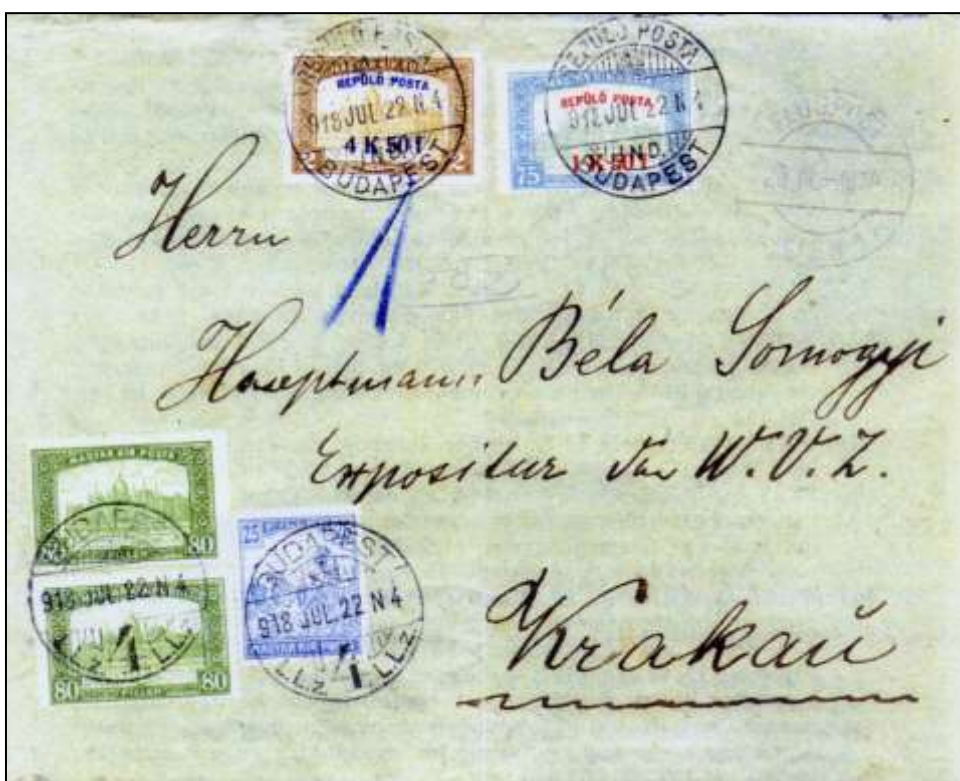 REPÜLŐ POSTA
918 JUL 22 N 4
4 K 50 f
2
BUDAPEST
REPÜLŐ POSTA
918 JUL 22 N 4
1 K 50 f
75
IND.
BUDAPEST
Herrn
Hauptmann Béla Somogyi
Expositur der W.V.Z.
Krakau
MAGYAR KIR POSTA
80
BUDAPEST
918 JUL 22 N 4
4
80 80
25
BUDAPEST
918 JUL. 22 N 4
4